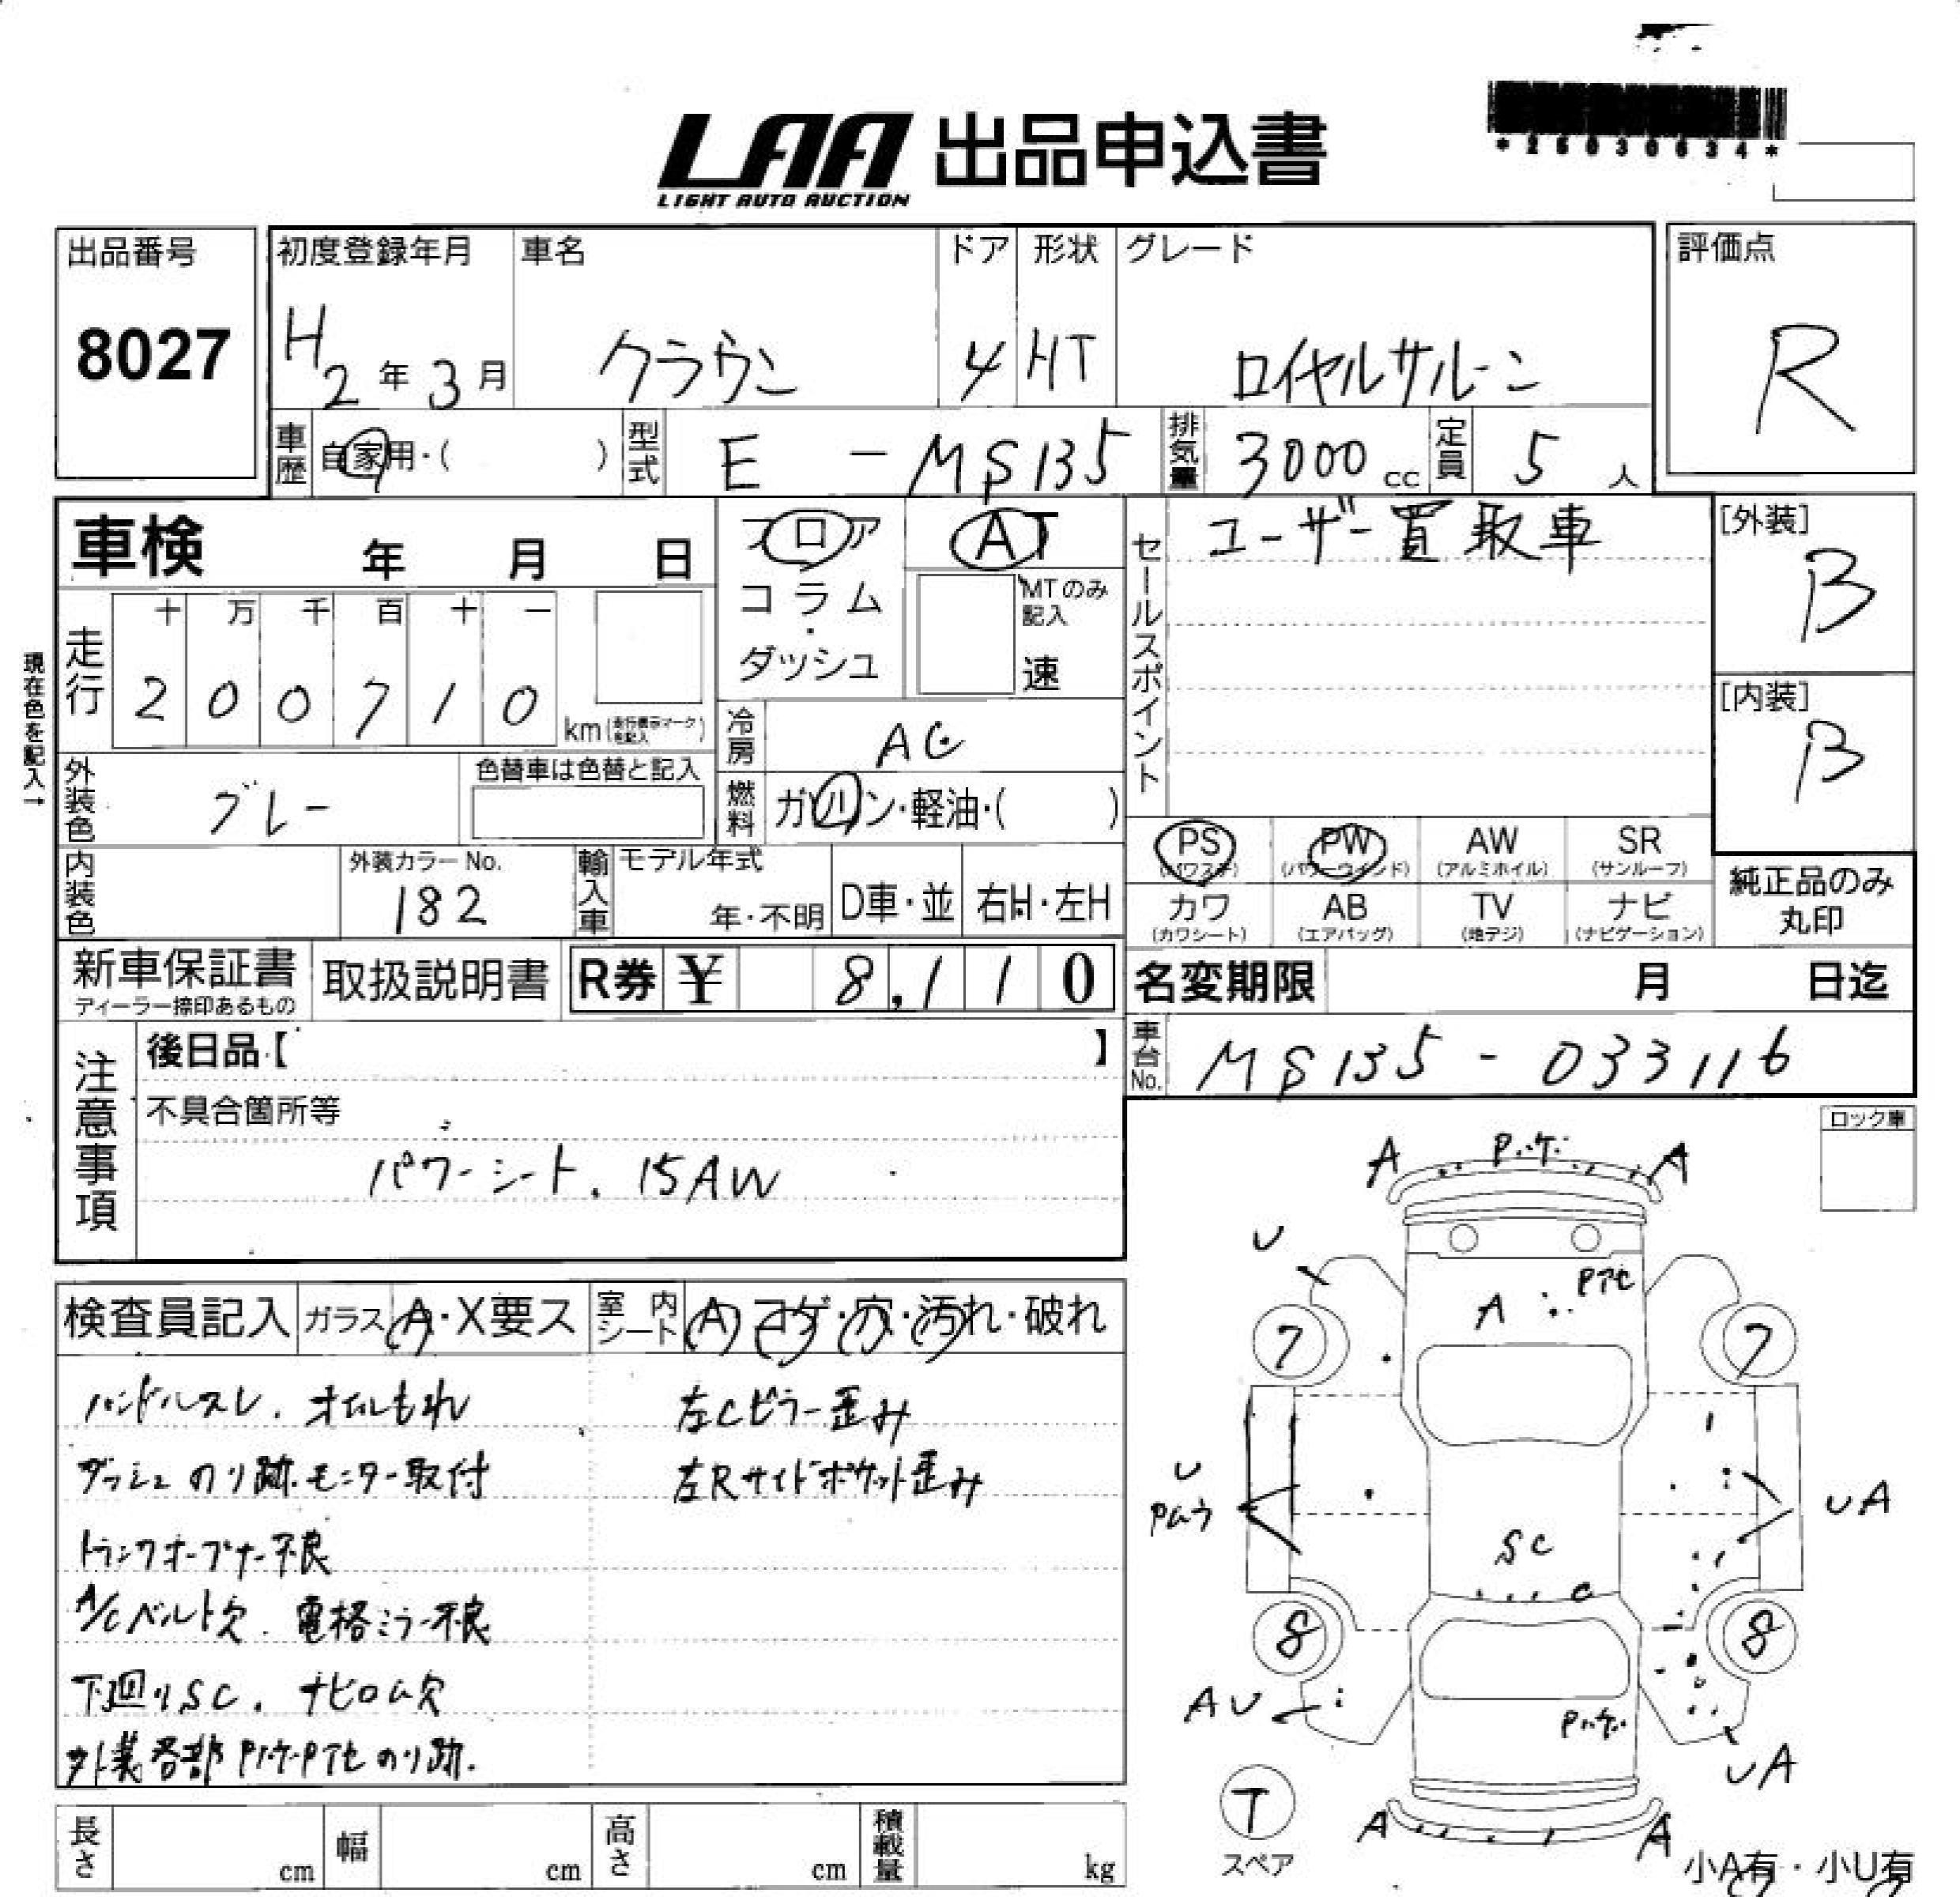 *25030634*
LAA 出品申込書
LIGHT AUTO AUCTION
出品番号 初度登録年月 車名 ドア 形状 グレード 評価点
8027 H2年3月 クラウン 4 HT ロイヤルサルーン R
車歴 自家用・( ) 型式 E - MS135 排気量 3000cc 定員 5人
車検 年 月 日 フロア AT セールスポイント ユーザー買取車 [外装]
B
コラム・ MTのみ記入
ダッシュ 速
現在色を記入→
走行 十 万 千 百 十 一
2 0 0 7 1 0 km(走行表示マークを記入)
[内装]
B
冷房 AC
外装色 グレー 色替車は色替と記入 燃料 ガソリン・軽油・( )
PS AW SR
PW
(パワステ) (パワーウインド) (アルミホイル) (サンルーフ)
内装色 外装カラーNo. 182 輸入車 モデル年式 年・不明 D車・並 右H・左H
カワ AB TV ナビ
(カワシート) (エアバッグ) (地デジ) (ナビゲーション)
純正品のみ
丸印
新車保証書 取扱説明書 R券 ¥ 8,110 名変期限 月 日迄
ディーラー捺印あるもの
車台No. MS135 - 033116
注意事項 後日品【 】
不具合箇所等
パワーシート、15AW
ロック車
検査員記入 ガラス A・X要ス 室内シート A コゲ・穴・汚れ・破れ
ハンドルスレ、オイルもれ 左Cピラー歪み
ダッシュのり跡.モニター取付 左Rサイドポケット歪み
トランクオープナー不良
A/Cベルト欠.電格ミラー不良
下回りSC、ナビロム欠
外装各部Pハゲ・Pアセのり跡.
A Pハゲ A
U
Pアセ
A
7 7
U
Pムラ
UA
SC
C
8 8
AU
Pハゲ
UA
T
スペア
A A
小A有・小U有
長さ cm 幅 cm 高さ cm 積載量 kg